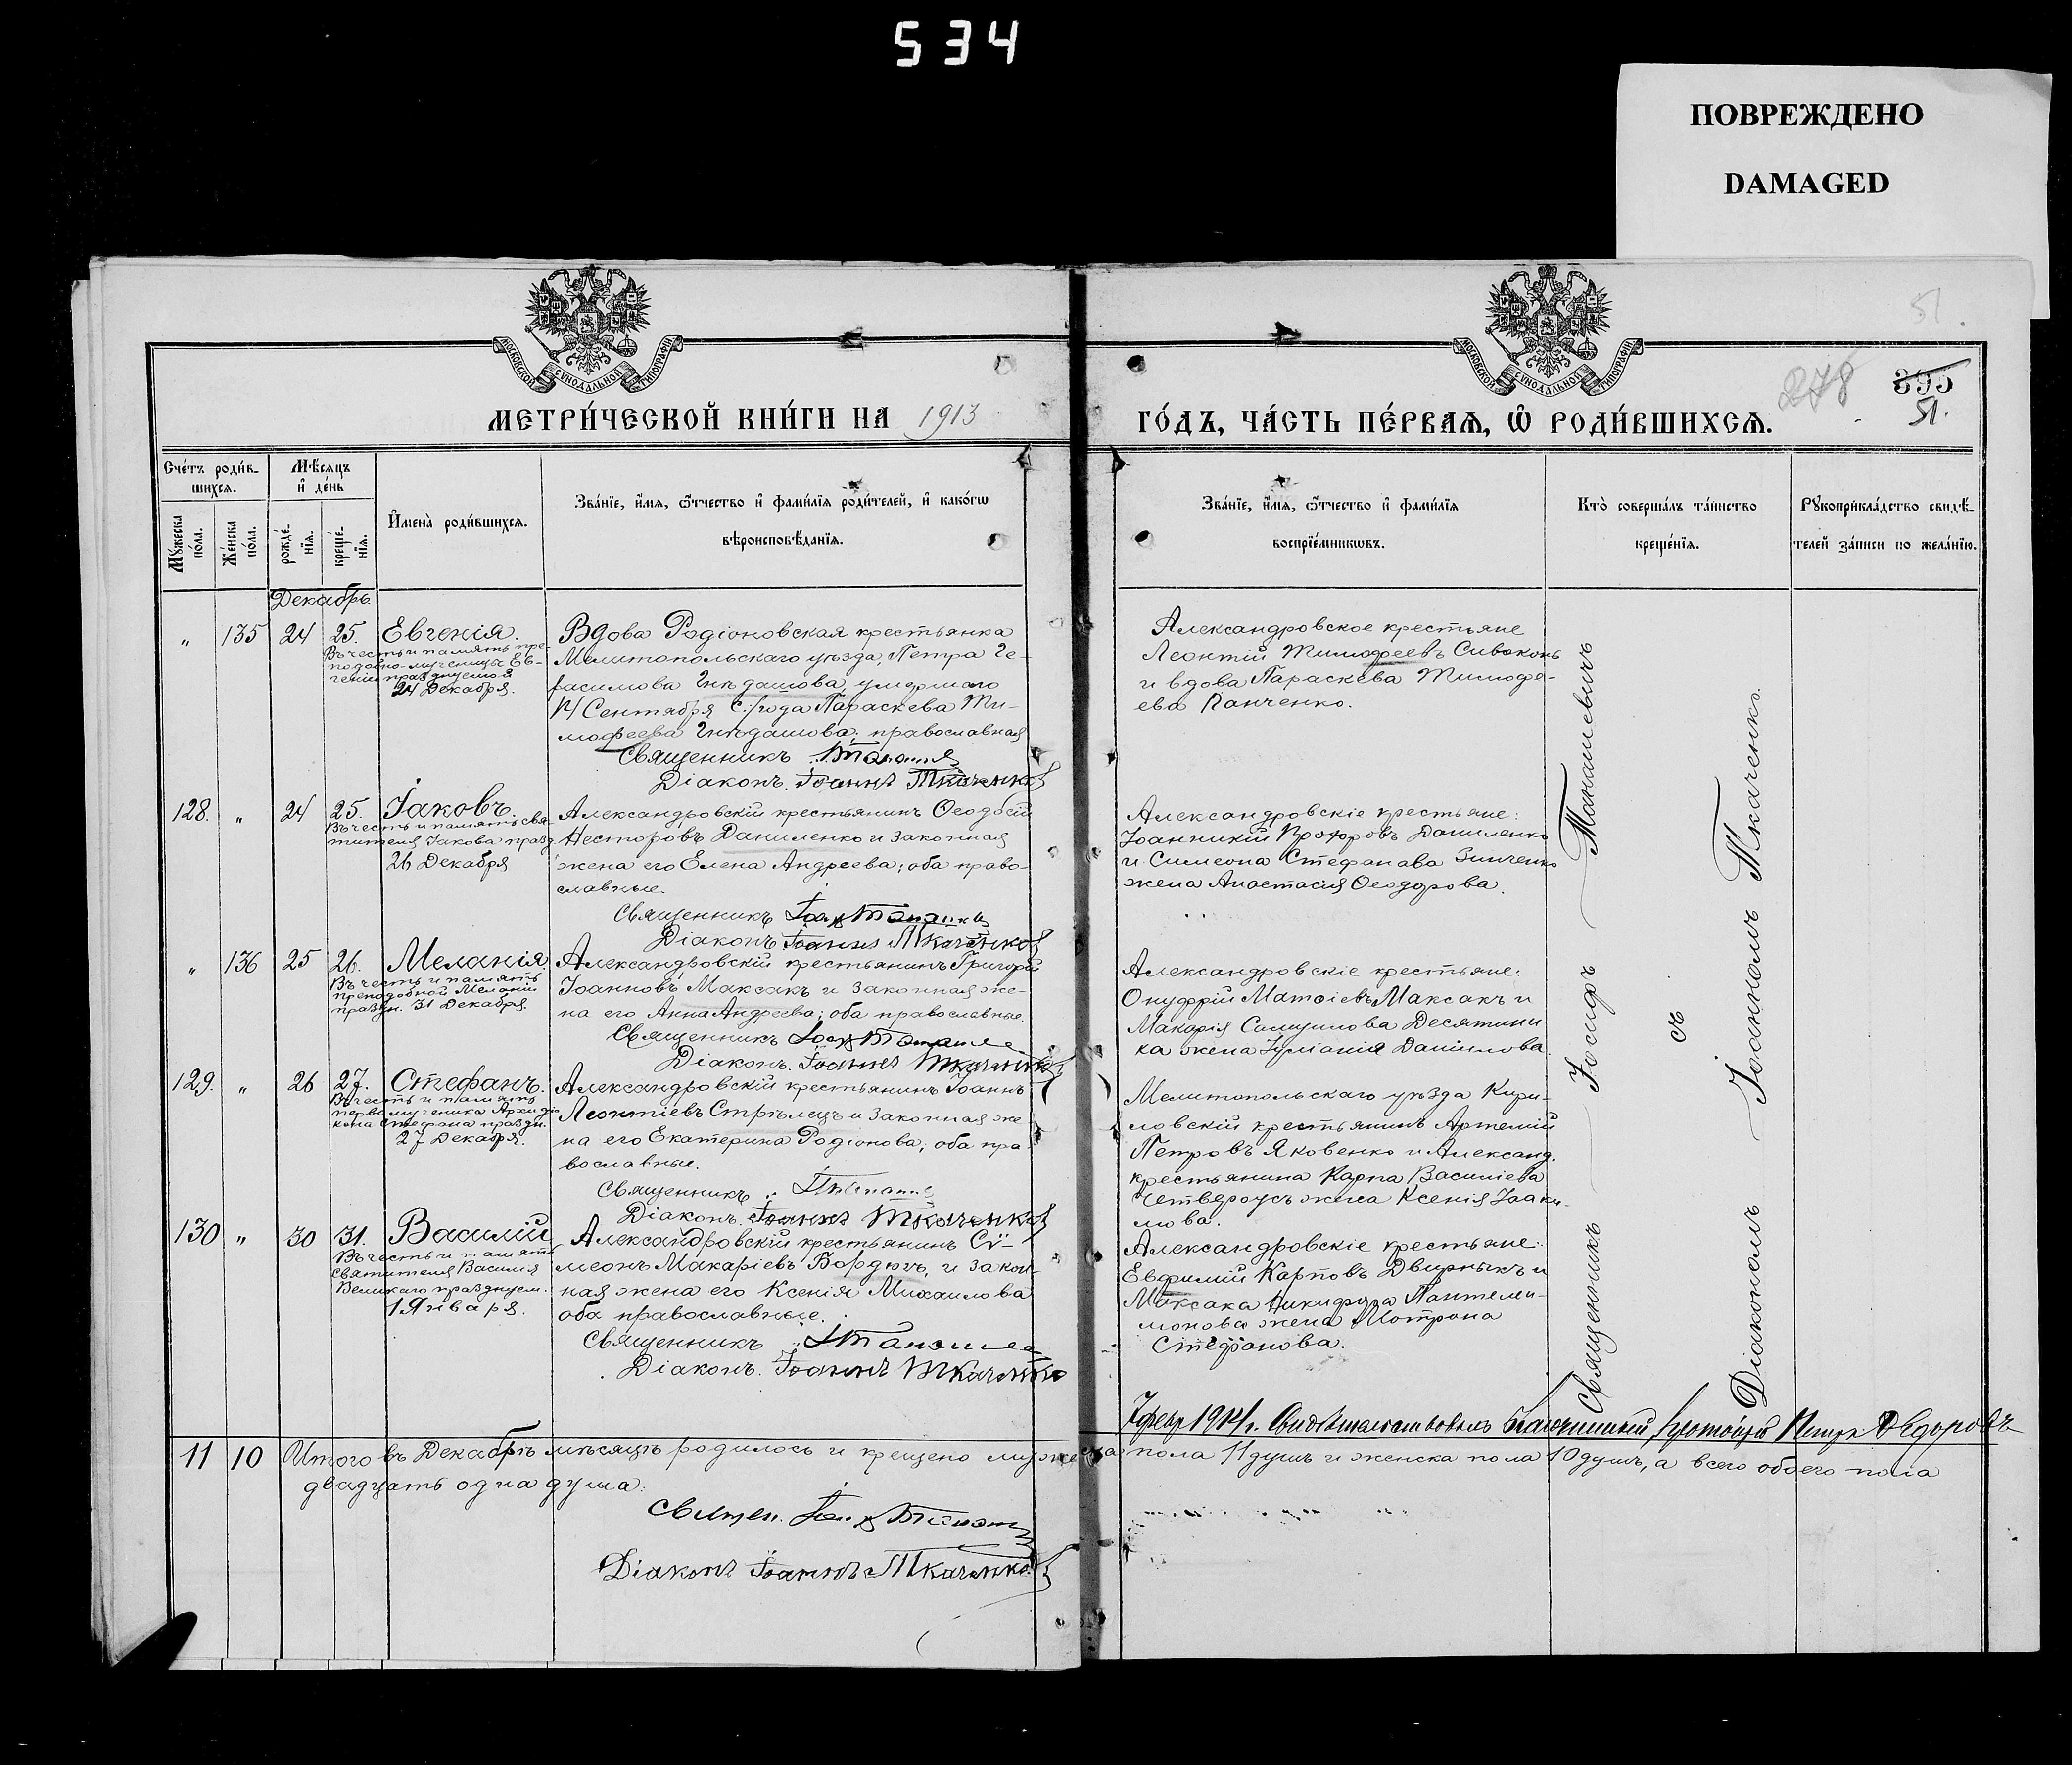 534
ПОВРЕЖДЕНО
DAMAGED
51.
МОСКОВСКОЙ СУНОДАЛЬНОЙ ТИПОГРАФІИ
МОСКОВСКОЙ СУНОДАЛЬНОЙ ТИПОГРАФІИ
278
895
51.
МЕТРИ́ЧЕСКОЙ КНИ́ГИ НА 1913
ГО́ДЪ, ЧА́СТЬ ПЕ́РВАѦ, Ѽ РОДИ́ВШИХСѦ.
Сче́тъ роди́в-
шихсѧ.
Мѣ́сѧцъ
и҆ де́нь
Мꙋ́жеска
по́ла.
Же́нска
по́ла.
рожде́-
нїѧ.
креще́-
нїѧ.
И҆мена̀ роди́вшихсѧ.
Зва́нїе, и҆́мѧ, ѻ҆́тчество и҆ фами́лїѧ роди́телей, и҆ како́гѡ
вѣроисповѣ́данїѧ.
Зва́нїе, и҆́мѧ, ѻ҆́тчество и҆ фами́лїѧ
воспрїе́мникѡвъ.
Кто̀ соверша́лъ та́инство
креще́нїѧ.
Рꙋкоприкла́дство свидѣ́-
телей за́писи по жела́нїю.
Декабрь.
„ 135 24 25. Евгенія.
Въ честь и память пре-
подобно-мученицы Ев-
геніи празднуемой
24 Декабря.
Вдова Родіоновская крестьянка
Мелитопольскаго уѣзда, Петра Ге-
расимова Гнѣдашова, умершаго
14 Сентября с./года Параскева Ти-
мофеева Гнѣдашова; православная
Священникъ
Діаконъ. Іоаннъ Ткаченко
Александровское крестьяне
Леонтій Тимофеевъ Сивоконь
и вдова Параскева Тимофе-
ева Панченко.
128. „ 24 25. Іаковъ.
Въ честь и память свя-
тителя Іакова празд.
26 Декабря
Александровскій крестьянинъ Ѳеодосій
Несторовъ Даниленко и законная
жена его Елена Андреева; оба право-
славные.
Священникъ
Діаконъ Іоаннъ Ткаченко
Александровскіе крестьяне:
Іоанникій Прохоровъ Даниленко
и Симеона Стефанова Зинченко
жена Анастасія Ѳеодорова.
„ 136 25 26. Меланія
Въ честь и память
преподобной Меланіи
праздн. 31 Декабря.
Александровскій крестьянинъ Григорій
Іоанновъ Максакъ и законная же-
на его Анна Андреева; оба православные.
Священникъ
Діаконъ. Іоаннъ Ткаченко
Александровскіе крестьяне:
Онуфрій Матѳіевъ Максакъ и
Макарія Самуилова Десятни
ка жена Іуліанія Даніилова.
129. „ 26 27. Стефанъ.
Въ честь и память
первомученика Архидіа
кона Стефана праздн.
27 Декабря.
Александровскій крестьянинъ Іоаннъ
Леонтіевъ Стрѣлецъ и законная же
на его Екатерина Родіонова; оба пра-
вославные.
Священникъ
Діаконъ. Іоаннъ Ткаченко
Мелитопольскаго уѣзда Кири-
ловскій крестьянинъ Артемій
Петровъ Яковенко и Александ.
крестьянина Карпа Василіева
Четвероусъ жена Ксенія Іоаки-
мова.
130 „ 30 31. Василій
Въ честь и память
святителя Василія
Великаго празднуем.
1 Января.
Александровскій крестьянинъ Сѵ-
меонъ Макаріевъ Бордюгъ, и закон-
ная жена его Ксенія Михаилова
оба православные.
Священникъ
Діаконъ. Іоаннъ Ткаченко
Александровскіе крестьяне:
Евфимій Карповъ Двирныкъ и
Максака Никифора Пантелеи-
монова жена Мотрона
Стефанова.
Священникъ Іосифъ
съ
Діакономъ Іоанномъ Ткаченко.
7 февр 1914 г. Свидѣтельствовалъ Благочинный, Протоіерей Петръ Ѳедоровъ
11 10 Итого въ Декабрѣ мѣсяцѣ родилось и крещено мужеска пола 11 душъ и женска пола 10 душъ, а всего обоего пола
двадцать одна душа.
Священ.
Діаконъ Іоаннъ Ткаченко